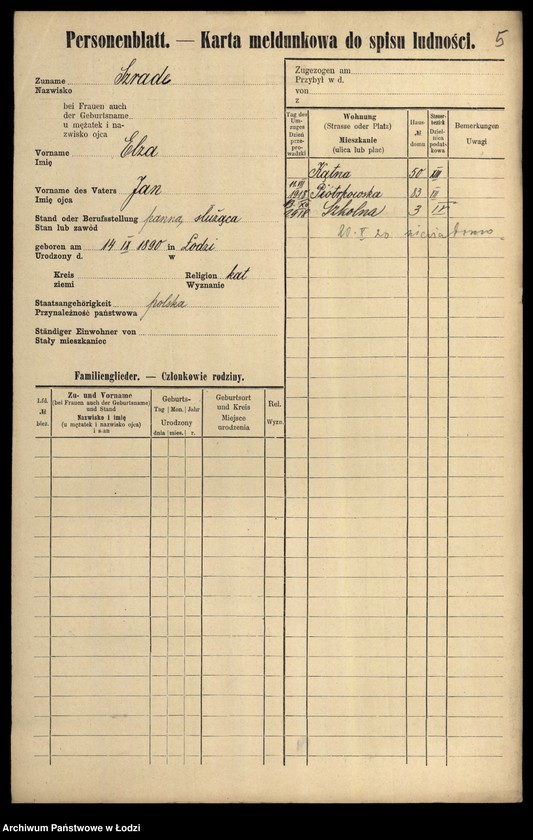 5
Personenblatt. — Karta meldunkowa do spisu ludności.
Zuname Szrade
Nazwisko
bei Frauen auch
der Geburtsname
u mężatek i na-
zwisko ojca
Vorname Elza
Imię
Vorname des Vaters Jan
Imię ojca
Stand oder Berufsstellung panna, służąca
Stan lub zawód
geboren am 14 IX 1890 in Łodzi
Urodzony d. w
Kreis Religion kat
ziemi Wyznanie
Staatsangehörigkeit polska
Przynależność państwowa
Ständiger Einwohner von
Stały mieszkaniec
Familienglieder. — Członkowie rodziny.
Lfd. № bież.
Zu- und Vorname
(bei Frauen auch der Geburtsname)
und Stand
Nazwisko i imię
(u mężatek i nazwisko ojca)
i s-an
Geburts-
Tag Mon. Jahr
Urodzony
dnia mies. r.
Geburtsort
und Kreis
Miejsce
urodzenia
Rel.
Wyzn.
Zugezogen am
Przybył w d.
von
z
Tag des
Um-
zuges
Dzień
prze-
prowadzki
Wohnung
(Strasse oder Platz)
Mieszkanie
(ulica lub plac)
Haus-
№
domu
Steuer-
bezirk
Dziel-
nica
podat-
kowa
Bemerkungen
Uwagi
Kątna 50 III
1918 Piotrkowska 83 III
1918 Szkolna 3 IV
20. I 20
Archiwum Państwowe w Łodzi